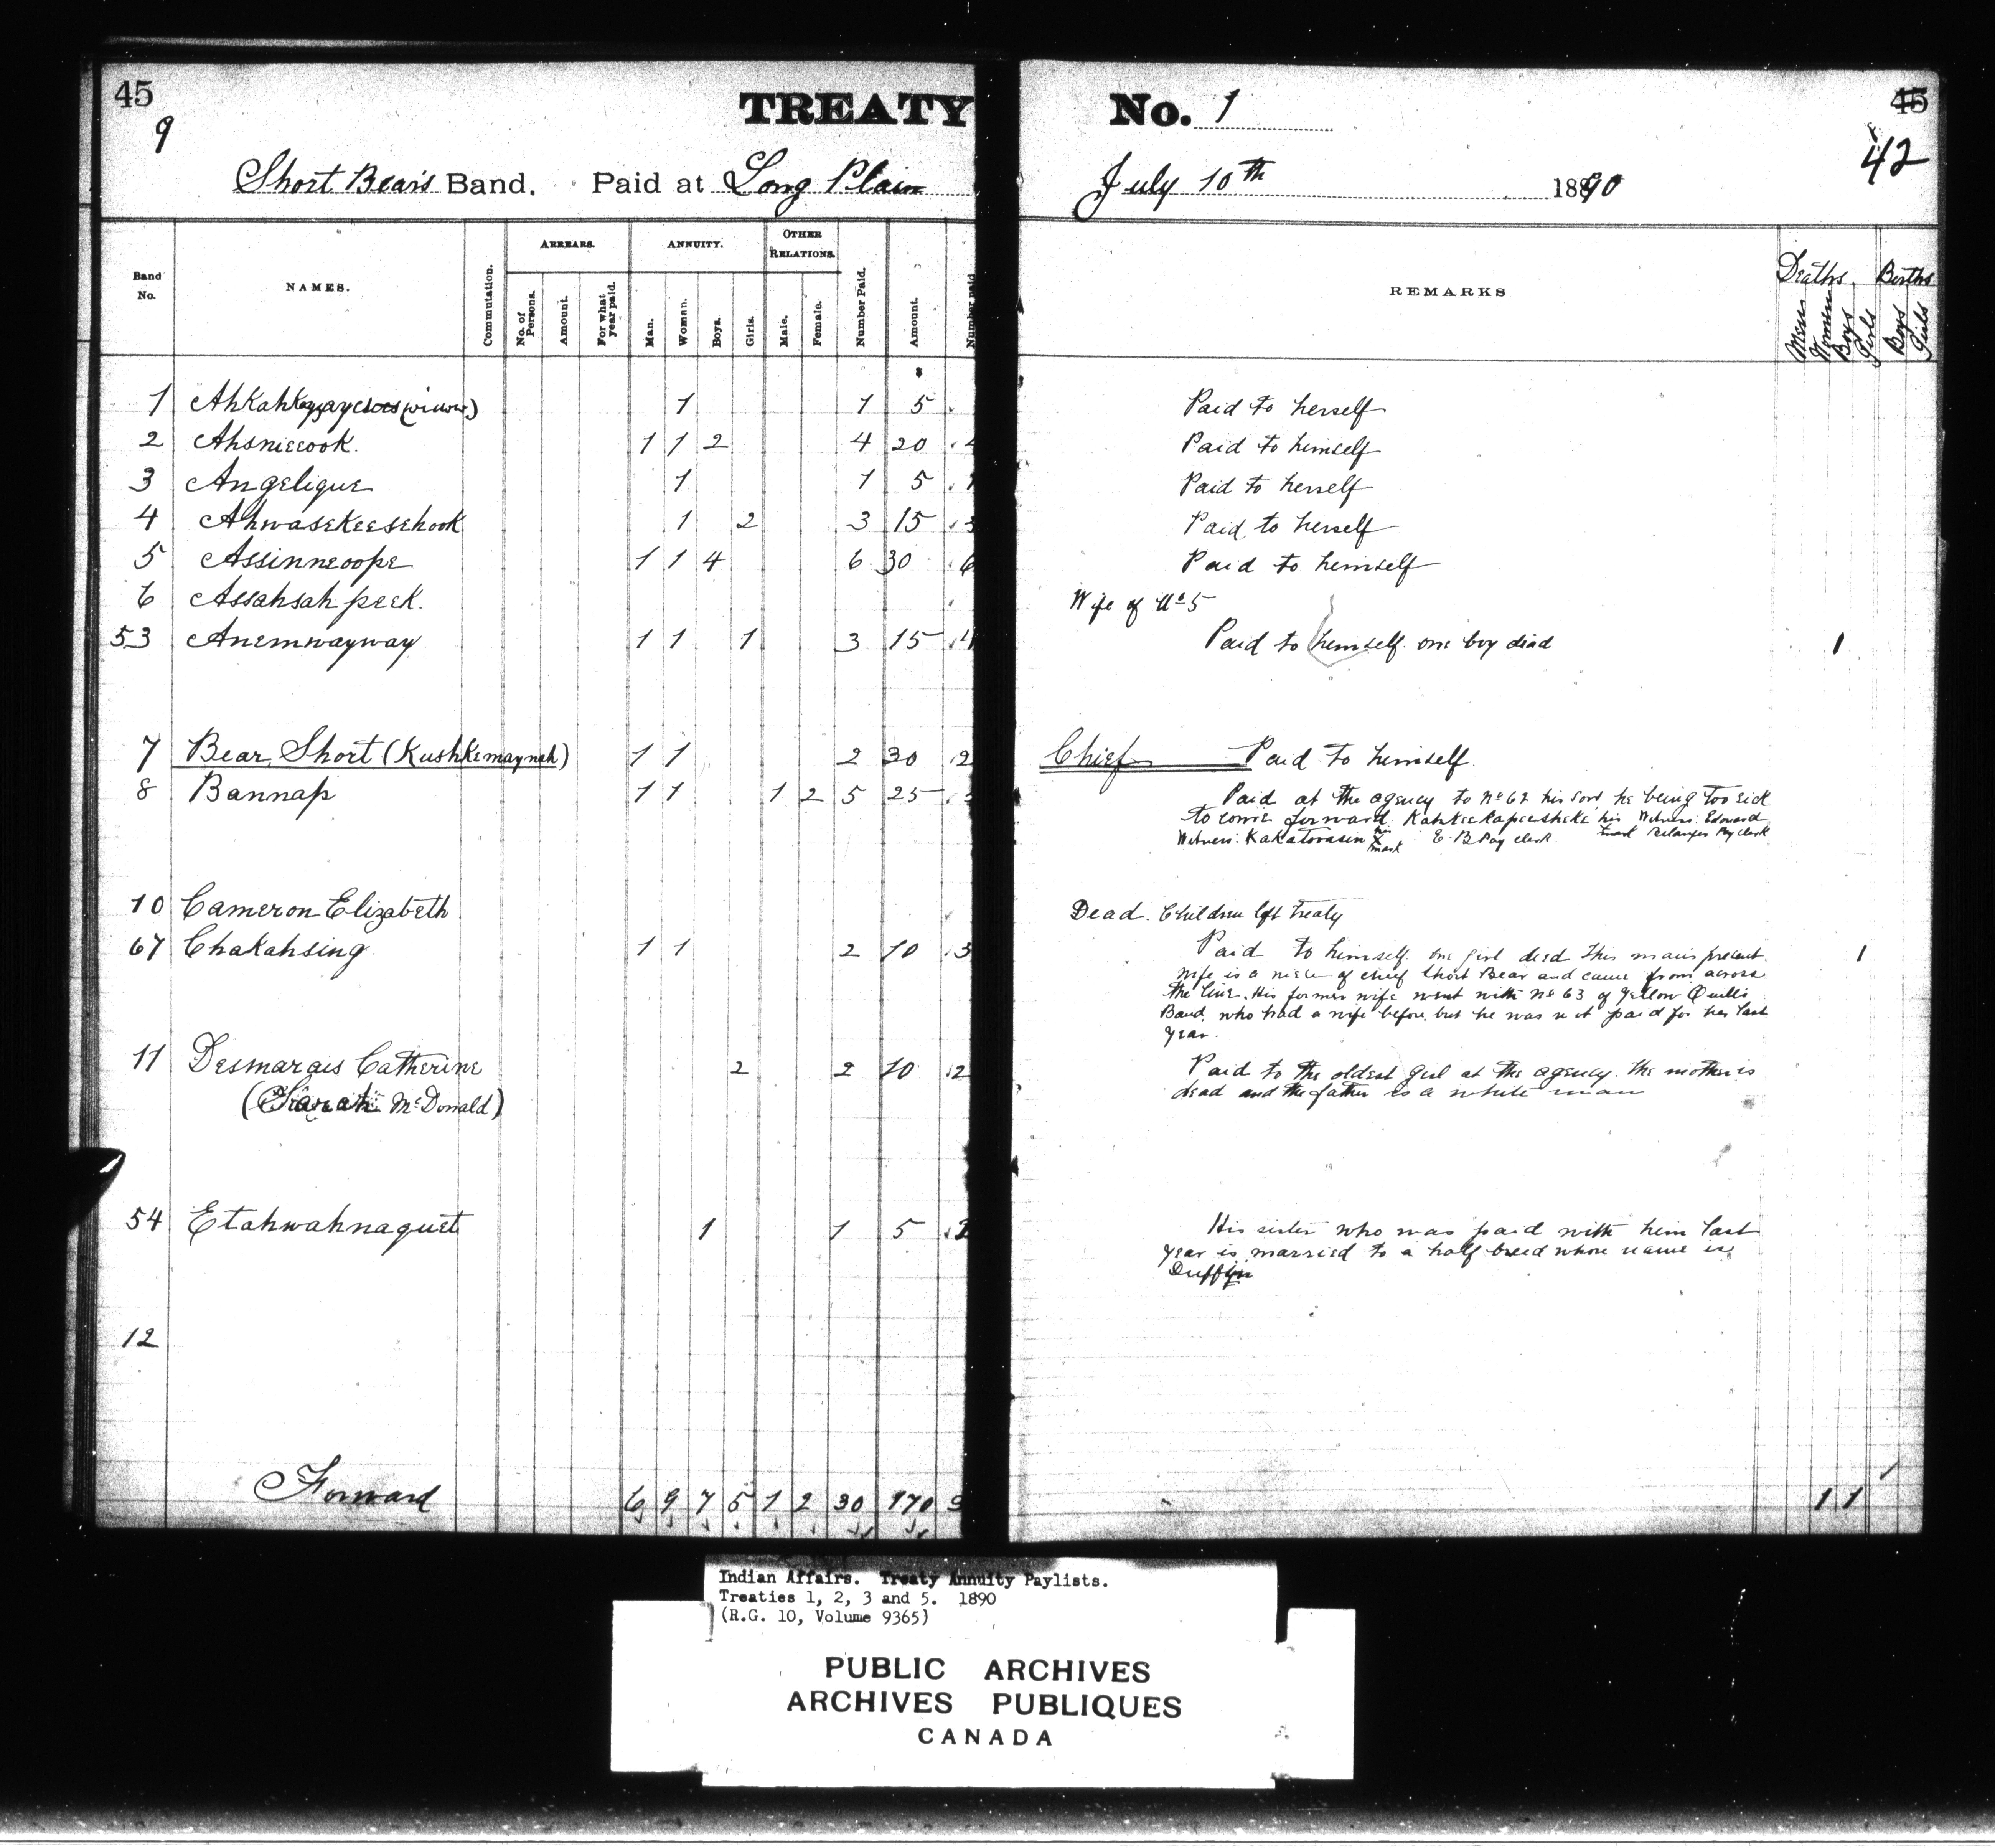 45
9
TREATY
Short Bear's Band. Paid at Long Plain
Band No. NAMES. Commutation. ARREARS. No. of Persons. Amount. For what year paid. ANNUITY. Man. Woman. Boys. Girls. OTHER RELATIONS. Male. Female. Number Paid. Amount. Number paid
1 (widow) 1 1 5
2 Ahsneecook. 1 1 2 4 20 4
3 Angelique 1 1 5 1
4 Ahwasekeesehook 1 2 3 15 3
5 Assinneoope 1 1 4 6 30 6
6 Assahsahpeek.
53 Anemwayway 1 1 1 3 15 4
7 Bear Short (Kushkemaynah) 1 1 2 30 2
8 Bannap 1 1 1 2 5 25
10 Cameron Elizabeth
67 Chakahsing 1 1 2 10 3
11 Desmarais Catherine 2 2 10 2
(Sarah McDonald)
54 Etahwahnaquet 1 1 5 2
12
Forward 6 9 7 5 1 2 30 170
No. 1
45
42
July 10th 1890
REMARKS Deaths. Men Women Boys Girls Births Boys Girls
Paid to herself
Paid to himself
Paid to herself
Paid to herself
Paid to himself
Wife of No 5
Paid to himself. one boy dead 1
Chief Paid to himself.
Paid at the agency to No 62 his son, he being too sick
to come forward. Kahkeekapeesheke his Witness. Edward
mark Belanger Pay clerk
Witness: Kakatowasin his x mark E. B Pay clerk
Dead. Children left treaty
Paid to himself. one girl dead This man's present 1
wife is a niece of chief Short Bear and came from across
the line. His former wife went with No 63 of Yellow Quill's
Band, who had a wife before, but he was not paid for her last
year.
Paid to the oldest girl at the agency. the mother is
dead and the father is a white man
His sister who was paid with him last
year is married to a half breed whose name is
1 1
Indian Affairs. Treaty Annuity Paylists.
Treaties 1, 2, 3 and 5. 1890
(R.G. 10, Volume 9365)
PUBLIC ARCHIVES
ARCHIVES PUBLIQUES
CANADA